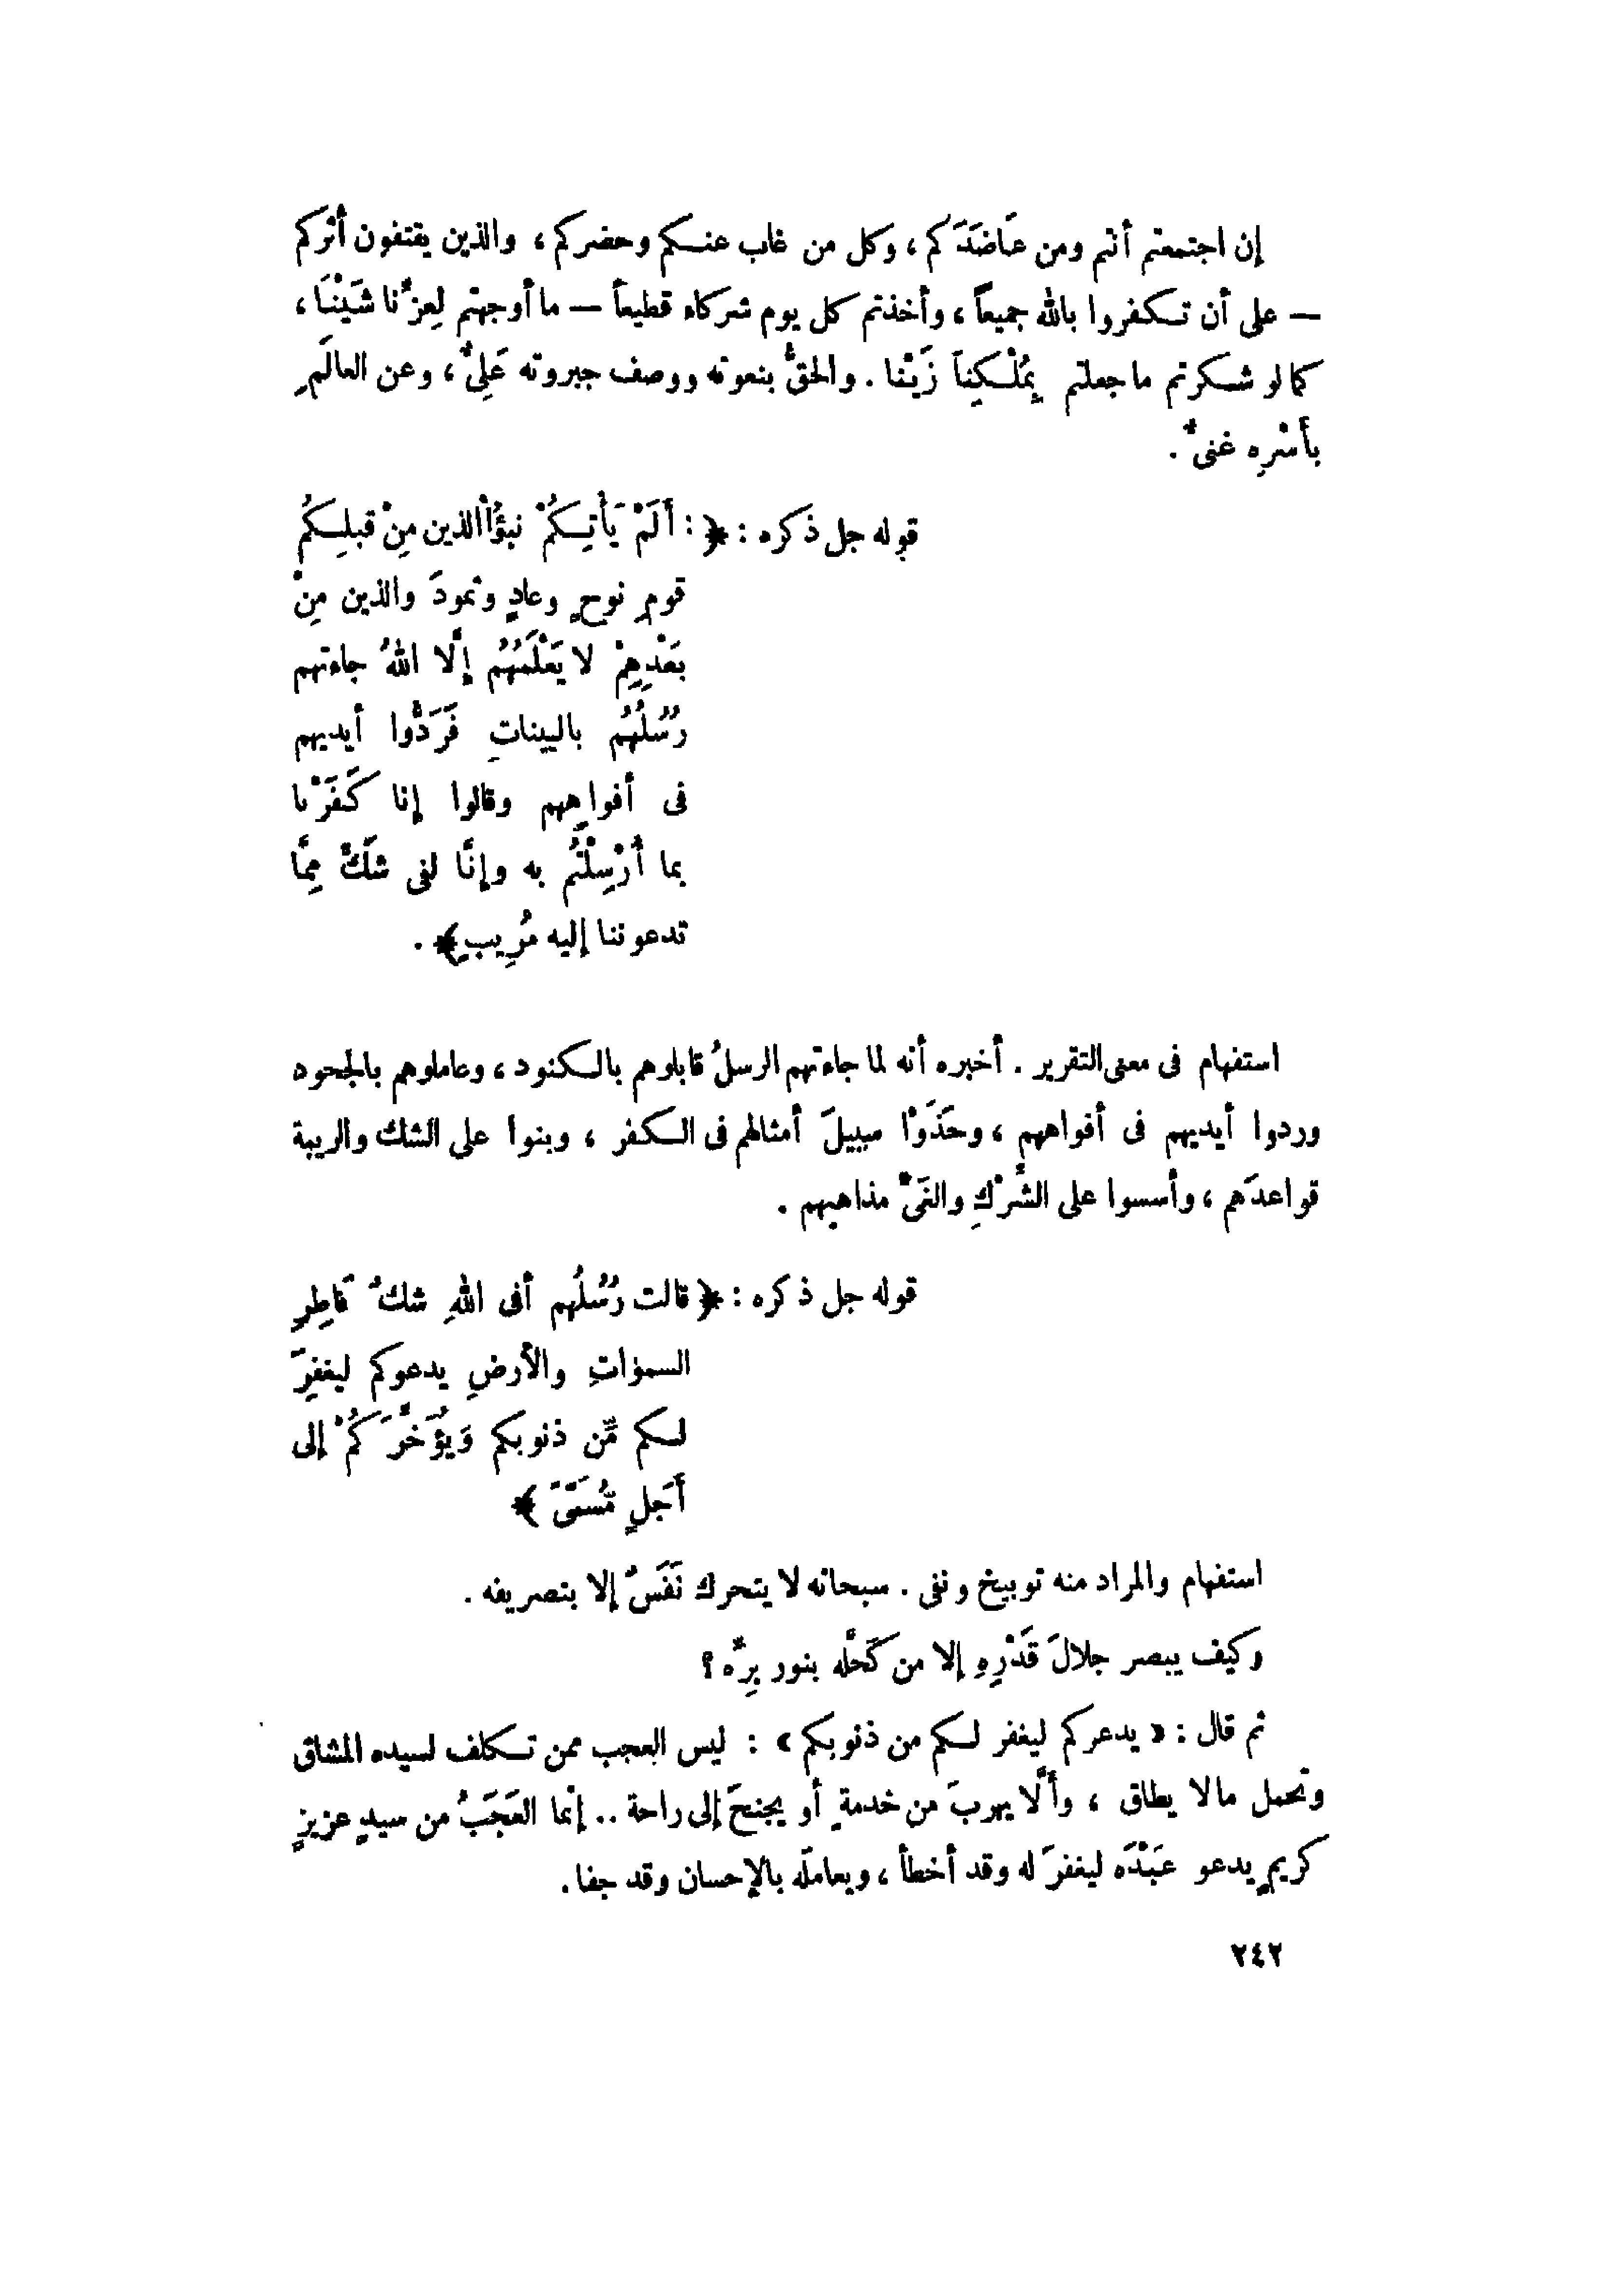 إن اجتمعتم أنتم ومن عَاضَدَكم ، وكل من غاب عنكم وحضركم ، والذين يقتفون أثركم
— على أن تكفروا بالله جميعاً ، وأخذتم كل يوم شركاء قطيعاً — ما أوجهتم لِعِزِّنا شَيْنَاً ،
كما لو شكرتم ما جعلتم بِمُلْكِنا زَيْنا . والحقُّ بنعوته ووصف جبروته عَلِىٌّ ، وعن العالَمِ
بأسْرِه غنىٌّ .
قوله جل ذكره : ﴿ : أَلَمْ يَأْتِكُمْ نبؤُا الذين مِنْ قبلِكُم
قومِ نوحٍ وعادٍ وثمودَ والذين مِنْ
بَعْدِهِمْ لا يَعْلَمُهُم إلَّا اللهُ جاءتهم
رُسُلُهُم بالبيناتِ فَرَدُّوا أيديهم
فى أفواهِهم وقالوا إنا كَفَرْنا
بما أُرْسِلْتُم به وإنَّا لفى شَكٍّ مِمَّا
تدعوننا إليه مُرِيبٍ﴾ .
استفهام فى معنى التقرير . أخبره أنه لما جاءتهم الرسلُ قابلوهم بالكنود ، وعاملوهم بالجحود
وردوا أيديهم فى أفواههم ، وحَذَوْا سبيلَ أمثالهم فى الكفر ، وبنوا على الشك والريبة
قواعدَهم ، وأسسوا على الشِّرْكِ والغَىِّ مذاهبهم .
قوله جل ذكره : ﴿ قالت رُسُلُهم أفى اللهِ شكٌّ فَاطِرِ
السمواتِ والأرضِ يدعوكم ليغفِرَ
لكم مِّن ذنوبكم وَيُؤَخِّرَكُمْ إلى
أَجَلٍ مُّسَمًّىَ ﴾
استفهام والمراد منه توبيخ ونفى . سبحانه لا يتحرك نَفَسٌ إلا بتصريفه .
وكيف يبصر جلالَ قَدْرِهِ إلا من كَحَّلَه بنور بِرِّه ؟
ثم قال : « يدعركم ليغفر لكم من ذنوبكم » : ليس العجب ممن تكلف لسيده المشاق
وتحمل مالا يطاق ، وأَلَّا يهربَ من خدمةٍ أو يجنحَ إلى راحة .. إنما العَجَبُ من سيدٍ عزيزٍ
كريمٍ يدعو عَبْدَه ليغفرَ له وقد أخطأ ، ويعاملَه بالإحسان وقد جفا .
٢٤٢